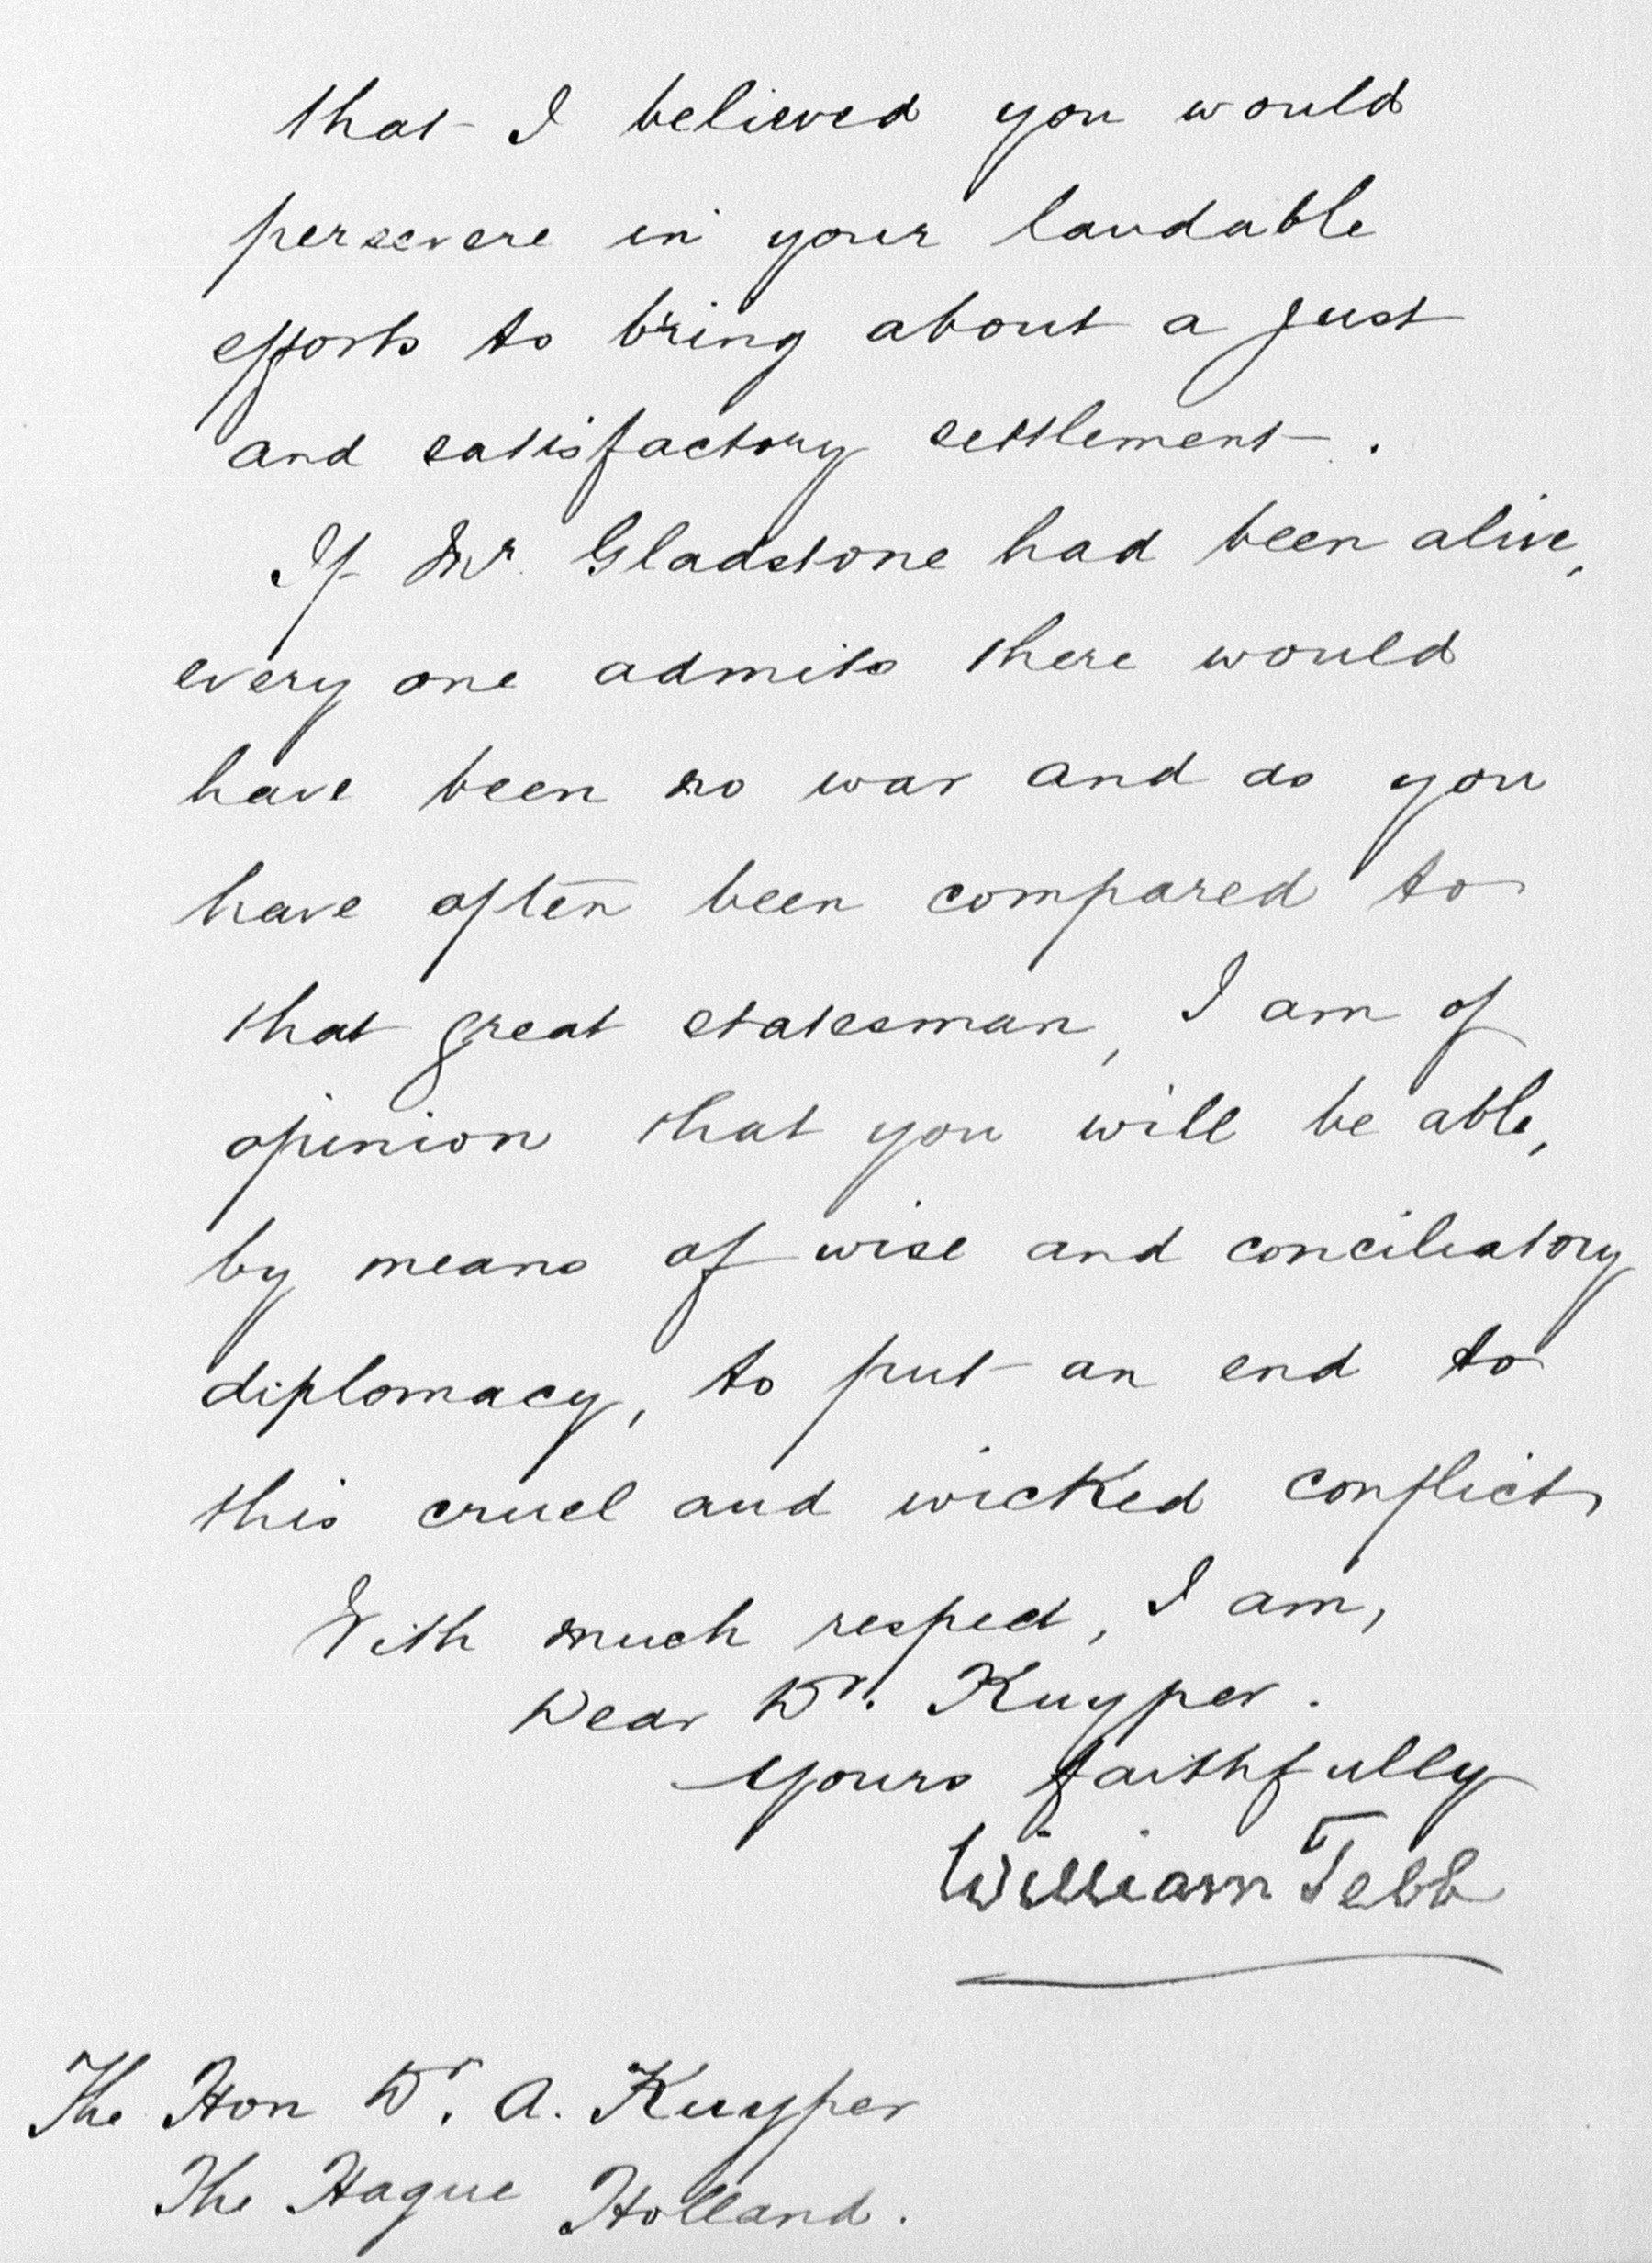 that I believed you would
persevere in your laudable
efforts to bring about a just
and satisfactory settlement.
If Mr. Gladstone had been alive,
every one admits there would
have been no war and as you
have often been compared to
that great statesman, I am of
opinion that you will be able,
by means of wise and conciliatory
diplomacy, to put an end to
this cruel and wicked conflict
With much respect, I am,
Dear Dr. Kuyper.
Yours faithfully
William Tebb
The Hon Dr. A. Kuyper
The Hague Holland.